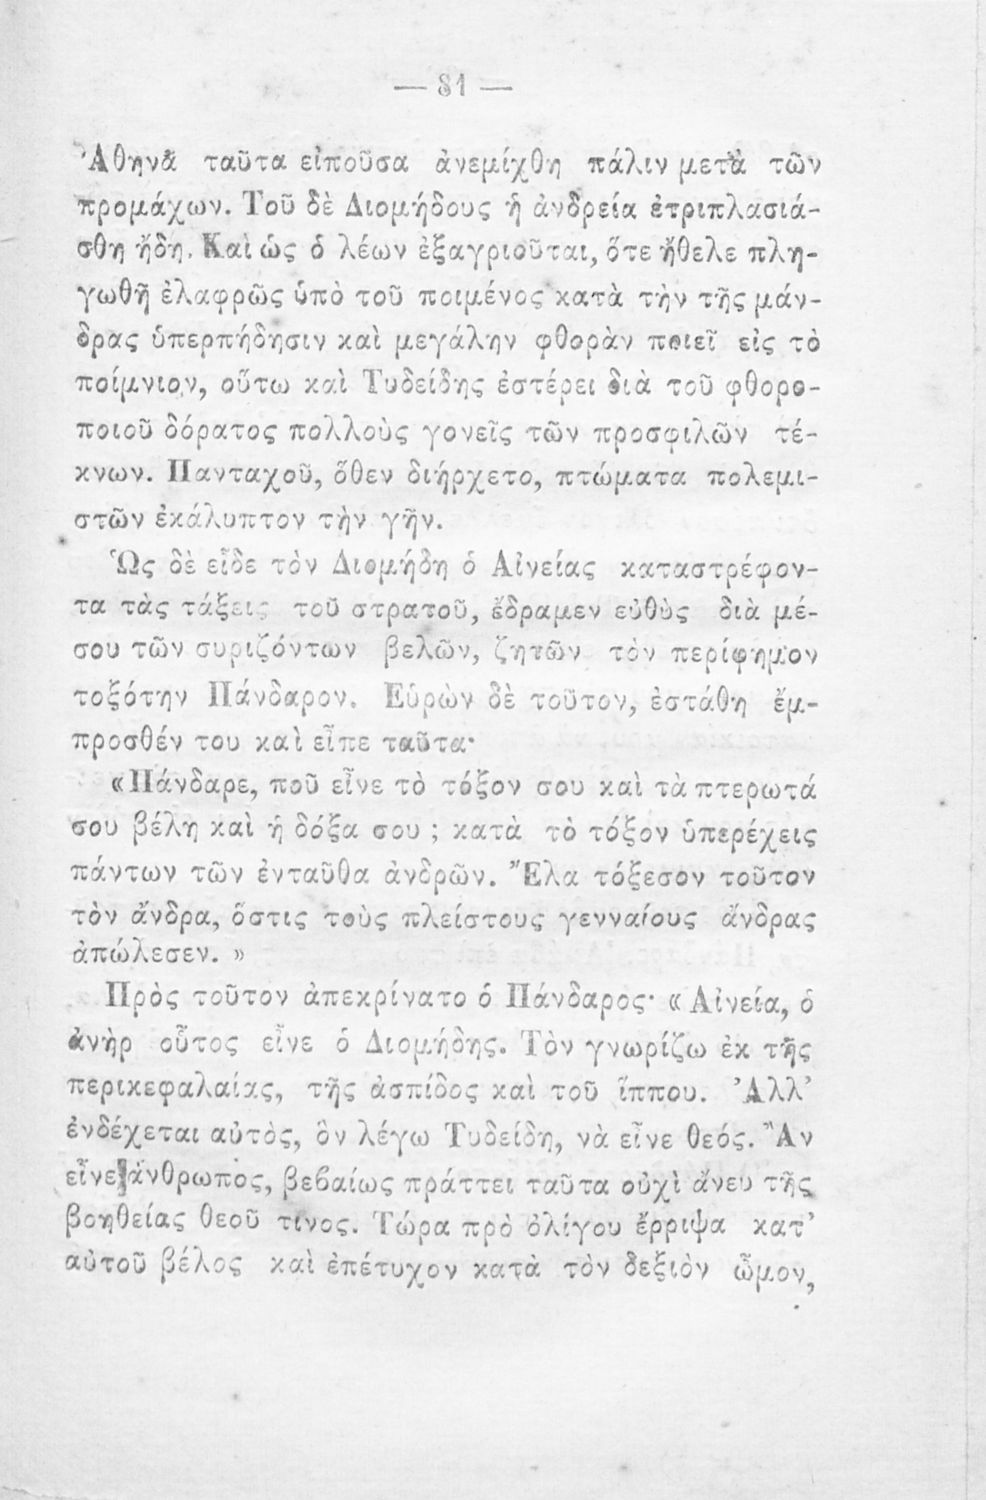 — 81 —
Ἀθηνᾶ ταῦτα εἰποῦσα ἀνεμίχθη πάλιν μετὰ τῶν
προμάχων. Τοῦ δὲ Διομήδους ἡ ἀνδρεία ἐτριπλασιά-
σθη ἤδη. Καὶ ὡς ὁ λέων ἐξαγριοῦται, ὅτε ἤθελε πλη-
γωθῆ ἐλαφρῶς ὑπὸ τοῦ ποιμένος κατὰ τὴν τῆς μάν-
δρας ὑπερπήδησιν καὶ μεγάλην φθορὰν ποιεῖ εἰς τὸ
ποίμνιον, οὕτω καὶ Τυδείδης ἐστέρει διὰ τοῦ φθορο-
ποιοῦ δόρατος πολλοὺς γονεῖς τῶν προσφιλῶν τέ-
κνων. Πανταχοῦ, ὅθεν διήρχετο, πτώματα πολεμι-
στῶν ἐκάλυπτον τὴν γῆν.
Ὡς δὲ εἶδε τὸν Διομήδη ὁ Αἰνείας καταστρέφον-
τα τὰς τάξεις τοῦ στρατοῦ, ἔδραμεν εὐθὺς διὰ μέ-
σου τῶν συριζόντων βελῶν, ζητῶν τὸν περίφημον
τοξότην Πάνδαρον. Εὑρὼν δὲ τοῦτον, ἐστάθη ἔμ-
προσθέν του καὶ εἶπε ταῦτα·
«Πάνδαρε, ποῦ εἶνε τὸ τόξον σου καὶ τὰ πτερωτά
σου βέλη καὶ ἡ δόξα σου ; κατὰ τὸ τόξον ὑπερέχεις
πάντων τῶν ἐνταῦθα ἀνδρῶν. Ἔλα τόξεσον τοῦτον
τὸν ἄνδρα, ὅστις τοὺς πλείστους γενναίους ἄνδρας
ἀπώλεσεν. »
Πρὸς τοῦτον ἀπεκρίνατο ὁ Πάνδαρος· « Αἰνεία, ὁ
ἀνὴρ οὗτος εἶνε ὁ Διομήδης. Τὸν γνωρίζω ἐκ τῆς
περικεφαλαίας, τῆς ἀσπίδος καὶ τοῦ ἵππου. Ἀλλ’
ἐνδέχεται αὐτὸς, ὃν λέγω Τυδείδη, νὰ εἶνε θεός. Ἂν
εἶνε ἄνθρωπος, βεβαίως πράττει ταῦτα οὐχὶ ἄνευ τῆς
βοηθείας θεοῦ τινος. Τώρα πρὸ ὀλίγου ἔρριψα κατ’
αὐτοῦ βέλος καὶ ἐπέτυχον κατὰ τὸν δεξιὸν ὦμον,